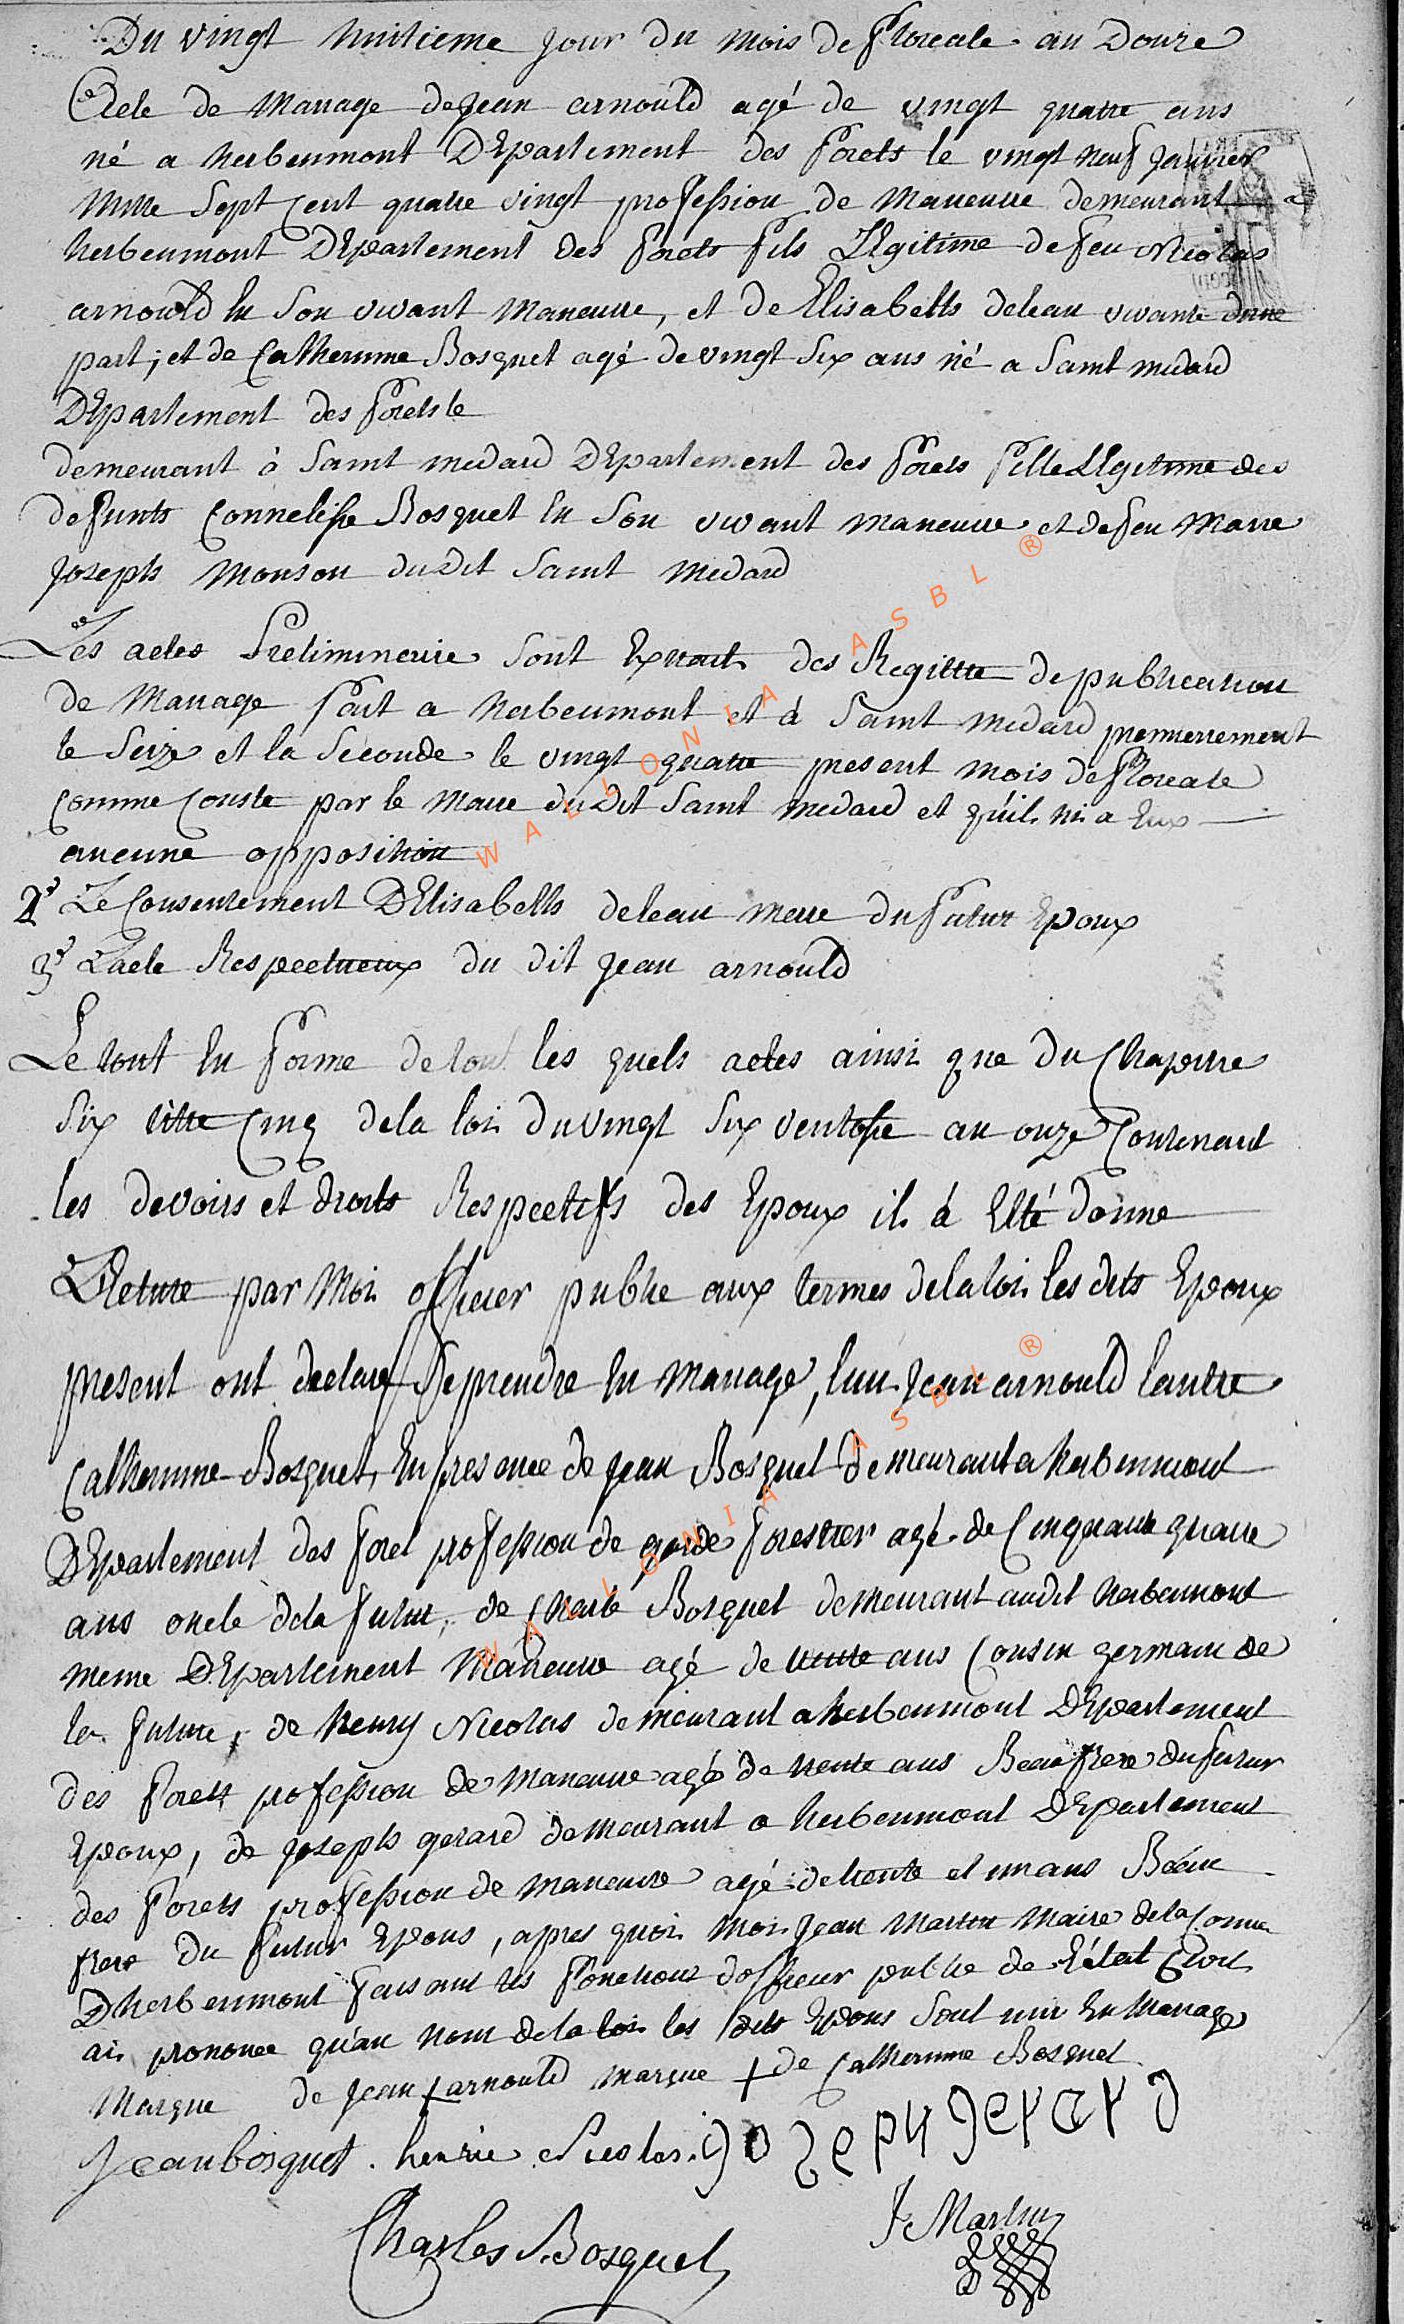 Du vingt huitieme jour du mois de floreale an Douze
Acte de Mariage de jean arnould agé de vingt quatre ans
né a herbeumont DEpartement des forets le vingt neuf janvier
Mille Sept Cent quatre vingt profession de Maneuvre demeurant a
herbeumont DEpartement des forets fils LEgitime de feu Nicolas
arnould En Son vivant Maneuvre, et de Elisabeth deleau vivante dune
part; et de Catherinne Bosquet agé de vingt Six ans né a Saint medard
DEpartement des forets le
demeurant à Saint medard DEpartement des forets fille LEgitime des
defunts Connelisse Bosquet En Son vivant maneuvre et de feu Marie
Joseph Monson du Dit Saint Medard
Les actes Preliminerie Sont Extrait des Regittre de publication
de Mariage fait a herbeumont et à Saint medard premierrement
le Seize et la Seconde le vingt quatre present mois de floreale
Comme Conste par le Maire du Dit Saint medard et quil ni a Eux
aucune opposition
2° Le Consentement DElisabeth deleau merre du futur Epoux
3° Lacte Respectueux du dit jean arnould
Le tout En forme de tout les quels actes ainsi que du Chapittre
Six titre Cinq de la loi du vingt Six ventosse an onze Contenant
les devoirs et droits Respectifs des Epoux il à Etté donne
LEcture par Moi officier public aux termes de la loi les dits Epoux
present ont declaré Se prendre En mariage, lun jean arnould lautre
Catherinne Bosquet, En presence de jean Bosquet demeurant a herbeumont
DEpartement des foret profession de garde forestier agé de Cinquante quatre
ans oncle de la futur, de Charle Bosquet demeurant audit herbeumont
meme DEpartement Maneuvre agé de trente ans Cousin germain de
la future, de henry Nicolas demeurant a herbeumont DEpartement
des forets profession de Maneuvre agé de trente ans Beau frere du futur
Epoux, de joseph gerard demeurant a herbeumont DEpartement
des forets profession de maneuvre agé de trente et un ans Beau
frere du futur Epous, apres quoi Moi jean Martin Maire de la Comm
Dherbeumont faisant les fonctions dofficier public de létat Civil
ai prononce quau nom de la loi les dits Epous Sont uni En Mariage
Marque de jean + arnould marque + de Catherinne Bosquet
Jean bosquet . henrie Nicolas. joseph gerard
Charles Bosquet J Martin
WALLONIA ASBL ®
WALLONIA ASBL ®